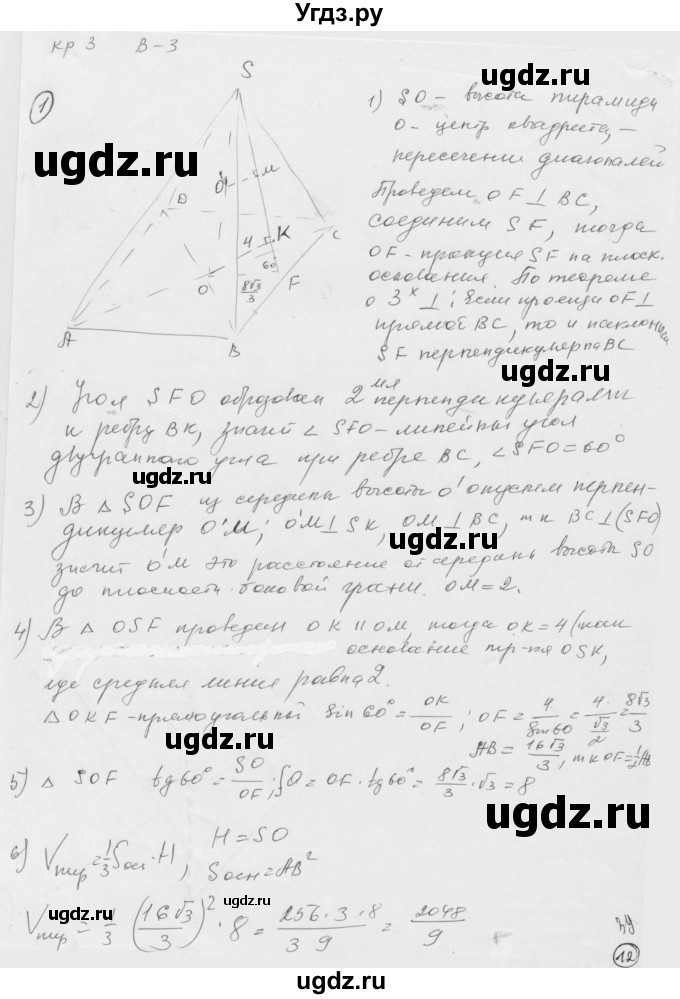 Угдз.ру
кр 3 В-3
1
S
O'
M
D
K
C
4
60
F
O
8√3/3
A
B
1) SO - высота пирамиды
O - центр квадрата, -
пересечении диагоналей
Проведем OF⊥BC,
соединим SF, тогда
OF - проекция SF на плоск.
основания. По теореме
о 3ˣ ⊥: Если проекци OF⊥
прямой BC, то и наклонная
SF перпендикулярна BC
2) Угол SFO образован 2мя перпендикулярами
к ребру BK, значит ∠SFO - линейный угол
двугранного угла при ребре BC, ∠SFO = 60°
3) В △SOF из середины высоты O' опустем перпен-
дикуляр O'M; O'M⊥SK, OM⊥BC, тк BC⊥(SFO)
значит O'M это расстояние от середины высоты SO
до плоскости боковой грани. OM=2.
4) В △OSF проведем OK ∥ OM, тогда OK=4 (как
основание тр-ка OSK,
где средняя линия равна 2.
△OKF - прямоугольный sin 60° = OK/OF; OF = 4/sin60 = 4/(√3/2) = 8√3/3
AB = 16√3/3, тк OF=½AB
5) △SOF tg60° = SO/OF; SO = OF·tg60° = 8√3/3·√3 = 8
6) Vпир = 1/3 Sосн·H, H = SO
Sосн = AB²
Vпир = 1/3 (16√3/3)²·8 = 256·3·8/3·9 = 2048/9
12
ugdz.ru
ugdz.ru
ugdz.ru
ugdz.ru
ugdz.ru
ugdz.ru
ugdz.ru
ugdz.ru
ugdz.ru
ugdz.ru
ugdz.ru
ugdz.ru